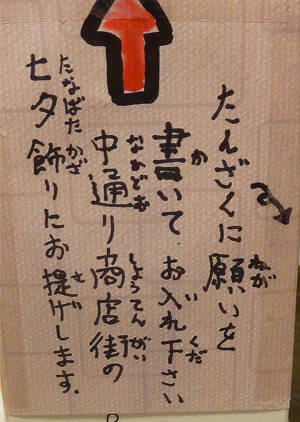 たんざくに願いを
書いて、お入れ下さい
中通り商店街の
七夕飾りにお提げします。
ねが
か
くだ
なかどお
しょうてんがい
たなばた
かざ
さ